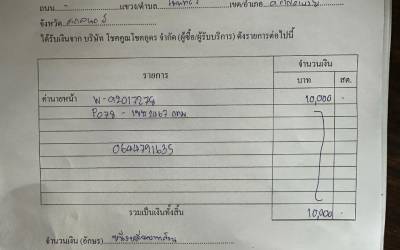 ถนน - แขวง/ตำบล เขต/อำเภอ
จังหวัด
ได้รับเงินจาก บริษัท โชคคูณโชคอุดร จำกัด (ผู้ซื้อ/ผู้รับบริการ) ดังรายการต่อไปนี้
รายการ จำนวนเงิน
บาท สต.
ค่านายหน้า W-92017274 10,000 -
0644791635
รวมเป็นเงินทั้งสิ้น 10,000 -
จำนวนเงิน (อักษร)